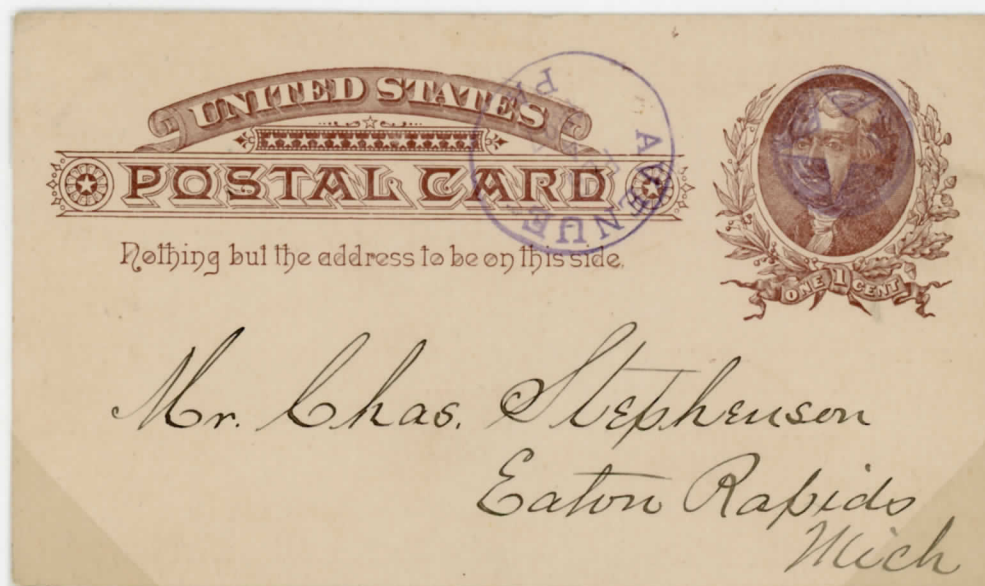 UNITED STATES
POSTAL CARD
Nothing but the address to be on this side.
ONE 1 CENT
AVENUE
PA
Mr. Chas. Stephenson
Eaton Rapids
Mich